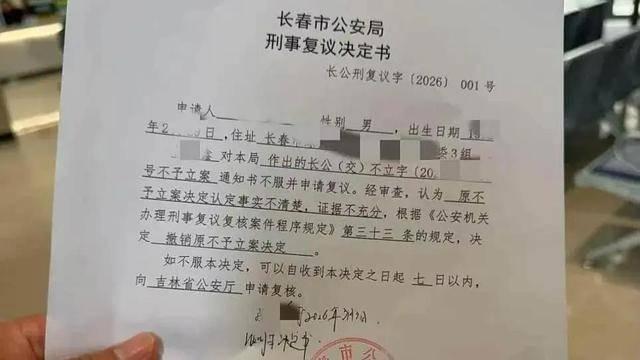 长春市公安局
刑事复议决定书
长公刑复议字〔2026〕 001 号
申请人 性别 男 ，出生日期 19
年2 日，住址 长春市 委3组
对本局 作出的长公（交）不立字〔20
号不予立案 通知书不服并申请复议。经审查，认为 原不
予立案决定认定事实不清楚，证据不充分，根据《公安机关
办理刑事复议复核案件程序规定》第三十三 条的规定，决
定 撤销原不予立案决定 。
如不服本决定，可以自收到本决定之日起 七 日以内，
向 吉林省公安厅 申请复核。
2026年
决定书